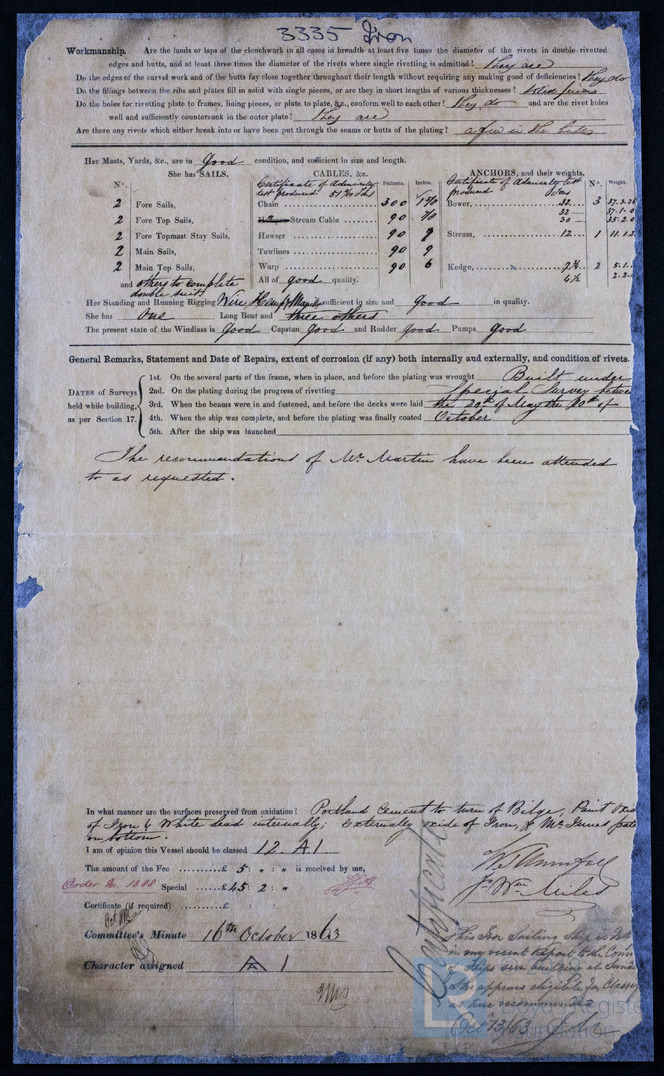 3335 Iron
Workmanship. Are the lands or laps of the clenchwork in all cases in breadth at least five times the diameter of the rivets in double rivetted
edges and butts, and at least three times the diameter of the rivets where single rivetting is admitted? they are
Do the edges of the carvel work and of the butts fay close together throughout their length without requiring any making good of deficiencies? they do
Do the fillings between the ribs and plates fill in solid with single pieces, or are they in short lengths of various thicknesses? solid pieces
Do the holes for rivetting plate to frames, lining pieces, or plate to plate, &c., conform well to each other? they do and are the rivet holes
well and sufficiently countersunk in the outer plate? they are
Are there any rivets which either break into or have been put through the seams or butts of the plating? a few in the butts
Her Masts, Yards, &c., are in good condition, and sufficient in size and length.
She has SAILS. CABLES, &c. ANCHORS, and their weights.
N°. Certificate of Admiralty test produced Fathoms. Inches. Certificate of Admiralty test produced N°. Weight.
2 Fore Sails, Chain 300 Bower, 32 3
2 Fore Top Sails, Stream Cable 90 32
2 Fore Topmast Stay Sails, Hawser 90 9 Stream, 12 1
2 Main Sails, Towlines 90 9
2 Main Top Sails, Warp 90 6 Kedge, 2
and others to complete double suits All of good quality. 4½
Her Standing and Running Rigging Wire Hemp & sufficient in size and good in quality.
She has One Long Boat and three others
The present state of the Windlass is good Capstan good and Rudder good Pumps good
General Remarks, Statement and Date of Repairs, extent of corrosion (if any) both internally and externally, and condition of rivets.
DATES of Surveys held while building, as per Section 17.
1st. On the several parts of the frame, when in place, and before the plating was wrought Built under
2nd. On the plating during the progress of rivetting Special Survey
3rd. When the beams were in and fastened, and before the decks were laid the 20th of May the 10th of
4th. When the ship was complete, and before the plating was finally coated October
5th. After the ship was launched
The recommendations of Mr. Martin have been attended
to as requested.
In what manner are the surfaces preserved from oxidation? Portland Cement to turn of Bilge, Paint
of Iron & White lead internally; Externally oxide of Iron, &
on bottom.
I am of opinion this Vessel should be classed 12 A1
The amount of the Fee £ 5 : " : " is received by me,
Special £ 45 : 2 : "
Certificate (if required) £ : :
Certificate
Committee's Minute 16th October 1863
Character assigned A 1
This Iron Sailing Ship is
in my recent Report to the
of Ships seen building at
She appears eligible for
as here recommended
Oct 13/63